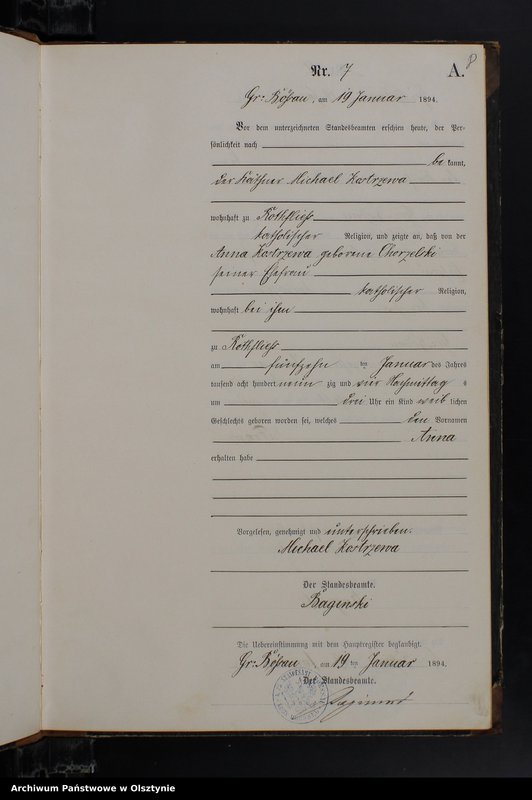 Nr. 7 A. 8
Gr: Bößau, am 19 Januar 1894.
Vor dem unterzeichneten Standesbeamten erschien heute, der Per-
sönlichkeit nach
be kannt,
der Käthner Michael Kostrzewa
wohnhaft zu Rothfließ
katholischer Religion, und zeigte an, daß von der
Anna Kostrzewa geborene Chorzelski
seiner Ehefrau
katholischer Religion,
wohnhaft bei ihm
zu Rothfließ
am fünfzehn ten Januar des Jahres
tausend acht hundert neun zig und vier Nachmittag s
um drei Uhr ein Kind weib lichen
Geschlechts geboren worden sei, welches den Vornamen
Anna
erhalten habe
Vorgelesen, genehmigt und unterschrieben.
Michael Kostrzewa
Der Standesbeamte.
Baginski
Die Uebereinstimmung mit dem Hauptregister beglaubigt.
Gr: Bößau, am 19 ten Januar 1894.
Der Standesbeamte.
Archiwum Państwowe w Olsztynie